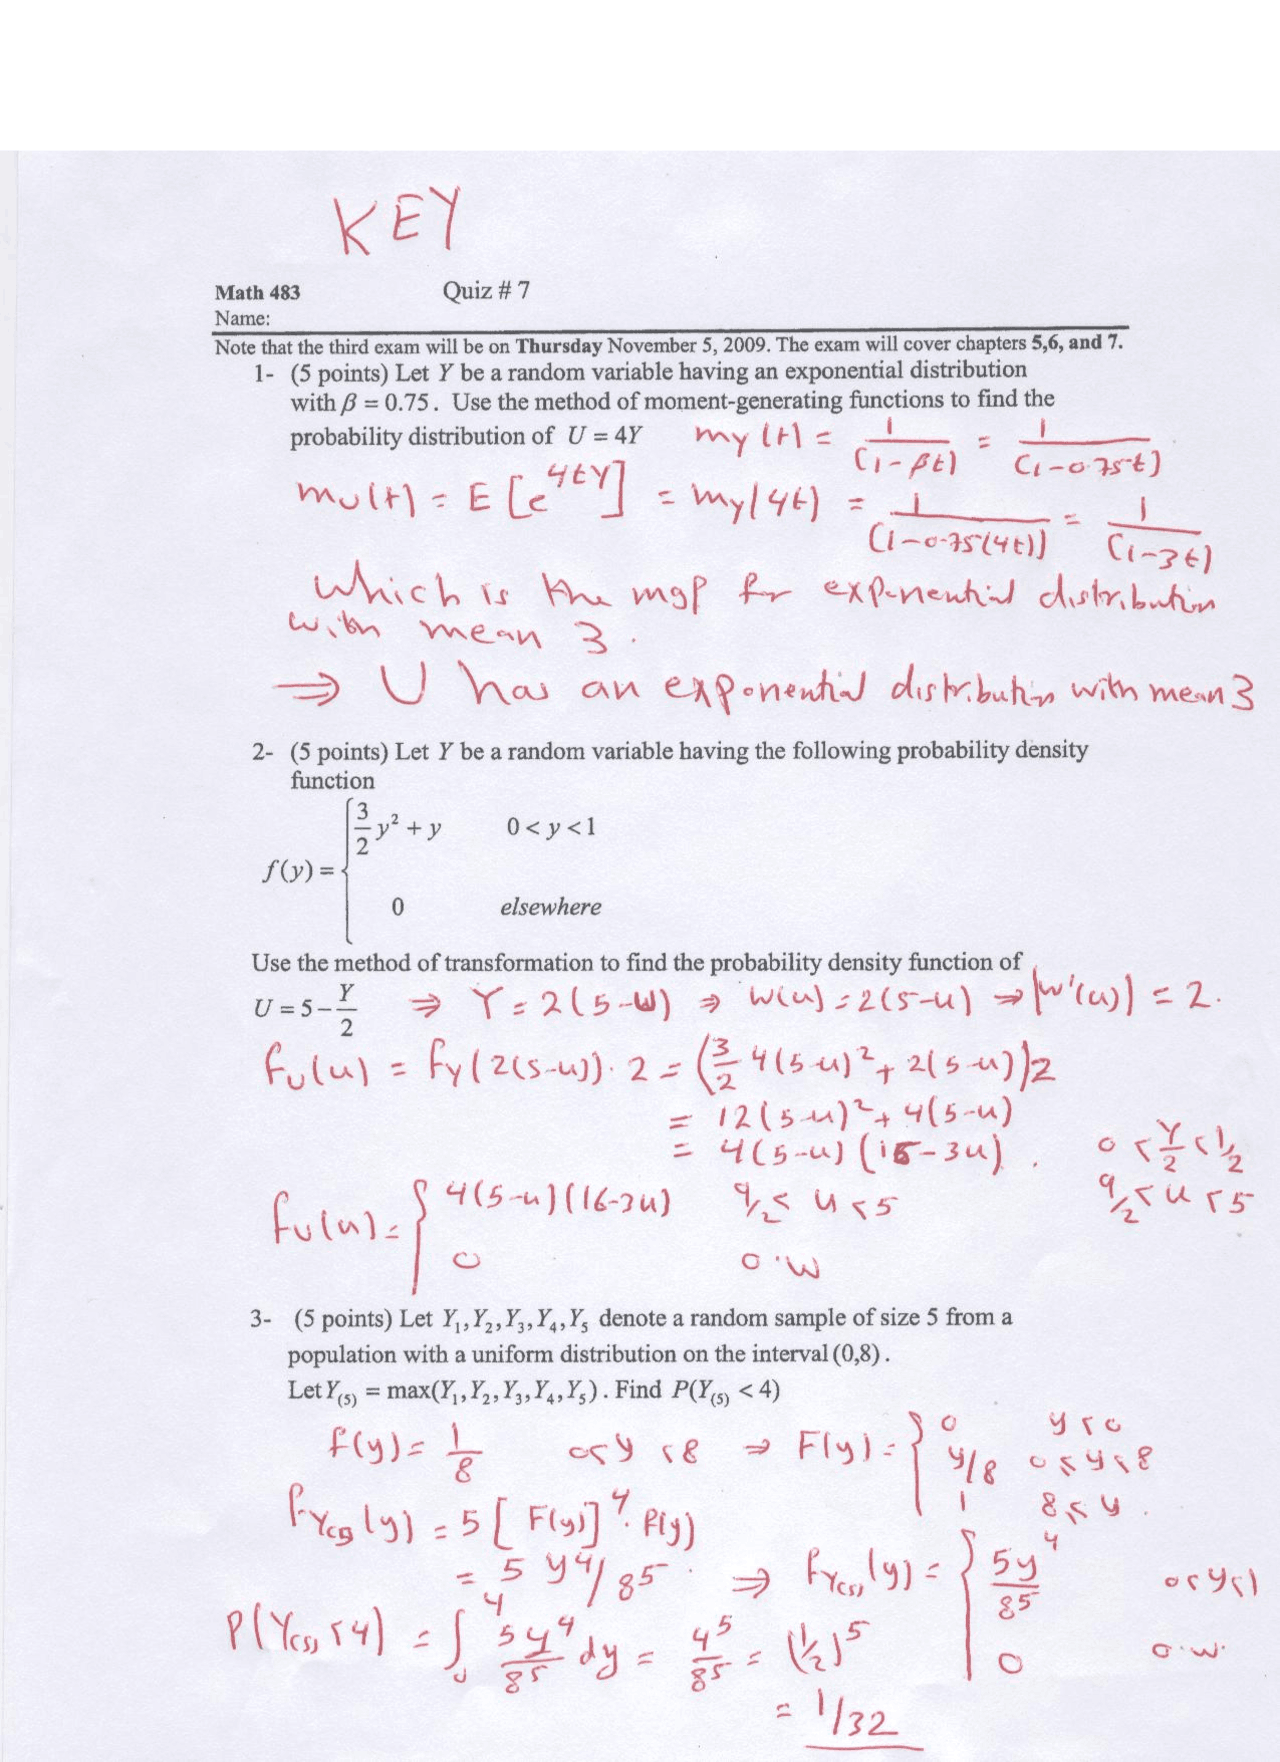 KEY
Math 483 Quiz # 7
Name:
Note that the third exam will be on Thursday November 5, 2009. The exam will cover chapters 5,6, and 7.
1- (5 points) Let Y be a random variable having an exponential distribution
with β = 0.75. Use the method of moment-generating functions to find the
probability distribution of U = 4Y my(t) = 1/(1-βt) = 1/(1-0.75t)
mU(t) = E[e^{4tY}] = my(4t) = 1/(1-0.75(4t)) = 1/(1-3t)
which is the mgf for exponential distribution
with mean 3.
⇒ U has an exponential distribution with mean 3
2- (5 points) Let Y be a random variable having the following probability density
function
f(y) = { 3/2 y² + y 0 < y < 1
0 elsewhere
Use the method of transformation to find the probability density function of
U = 5 - Y/2 ⇒ Y = 2(5-U) ⇒ W(u) = 2(5-u) ⇒ |W'(u)| = 2.
fU(u) = fY(2(5-u)) · 2 = (3/2 4(5-u)² + 2(5-u))2
= 12(5-u)² + 4(5-u)
= 4(5-u)(16-3u). 0 < Y/2 < 1/2
9/2 < u < 5
fU(u) = { 4(5-u)(16-3u) 9/2 < u < 5
0 o.w
3- (5 points) Let Y₁,Y₂,Y₃,Y₄,Y₅ denote a random sample of size 5 from a
population with a uniform distribution on the interval (0,8).
Let Y₍₅₎ = max(Y₁,Y₂,Y₃,Y₄,Y₅). Find P(Y₍₅₎ < 4)
f(y) = 1/8 0<y<8 ⇒ F(y) = { 0 y<0
y/8 0≤y<8
1 8≤y.
fY₍₅₎(y) = 5[F(y)]⁴ · f(y)
= 5 y⁴/8⁵. ⇒ fY₍₅₎(y) = { 5y⁴/8⁵ 0<y<1
0 o.w.
P(Y₍₅₎<4) = ∫₀⁴ 5y⁴/8⁵ dy = 4⁵/8⁵ = (1/2)⁵
= 1/32